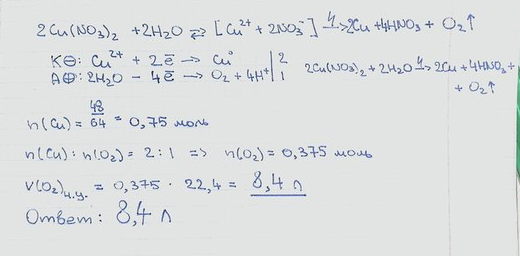 2Cu(NO₃)₂ + 2H₂O ⇄ [Cu²⁺ + 2NO₃⁻] ⟶ 2Cu + 4HNO₃ + O₂↑
K⊖: Cu²⁺ + 2ē → Cu° | 2
A⊕: 2H₂O − 4ē → O₂ + 4H⁺ | 1
2Cu(NO₃)₂ + 2H₂O ⟶ 2Cu + 4HNO₃ +
+ O₂↑
n(Cu) = 48/64 = 0,75 моль
n(Cu) : n(O₂) = 2 : 1 => n(O₂) = 0,375 моль
V(O₂)н.у. = 0,375 · 22,4 = 8,4 л
Ответ: 8,4 л